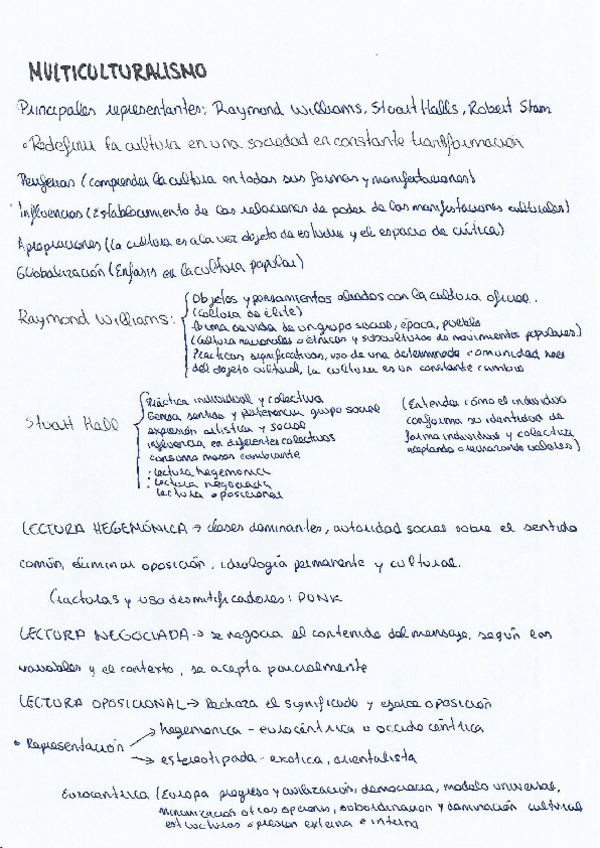 MULTICULTURALISMO
Principales representantes: Raymond Williams, Stuart Halls, Robert Stam
• Redefinir la cultura en una sociedad en constante transformación
Periferias (comprender la cultura en todas sus formas y manifestaciones)
Influencias (Establecimiento de las relaciones de poder de las manifestaciones culturales)
Apropiaciones (la cultura es a la vez objeto de estudio y el espacio de crítica)
Globalización (Énfasis en la cultura popular)
Raymond Williams:
Objetos y pensamientos aliados con la cultura oficial.
(cultura de élite)
forma de vida de un grupo social, época, pueblo
(cultura nacionales o étnicos y subculturas de movimientos populares)
Prácticas significativas, uso de una determinada comunidad
del objeto cultural, la cultura es un constante cambio
Stuart Hall
Práctica individual y colectiva
Genera sentido y pertenencia grupo social
expresión artística y social
influencia en diferentes colectivos
consumo masas cambiante
: lectura hegemónica
: lectura negociada
lectura oposicional
(Entender cómo el individuo
conforma su identidad de
forma individual y colectiva
aceptando o rechazando valores)
LECTURA HEGEMÓNICA → clases dominantes, autoridad social sobre el sentido
común, eliminar oposición, ideología permanente y cultural.
fracturas y uso desmitificadores: PUNK
LECTURA NEGOCIADA → se negocia el contenido del mensaje, según las
variables y el contexto, se acepta parcialmente
LECTURA OPOSICIONAL → Rechaza el significado y ejerce oposición
• Representación
→ hegemónica - eurocéntrica u occidocéntrica
→ estereotipada - exótica, orientalista
Eurocéntrica (Europa progreso y civilización, democracia, modelo universal,
minimización otras opciones, subordinación y dominación cultural
estructuras opresión externa e interna